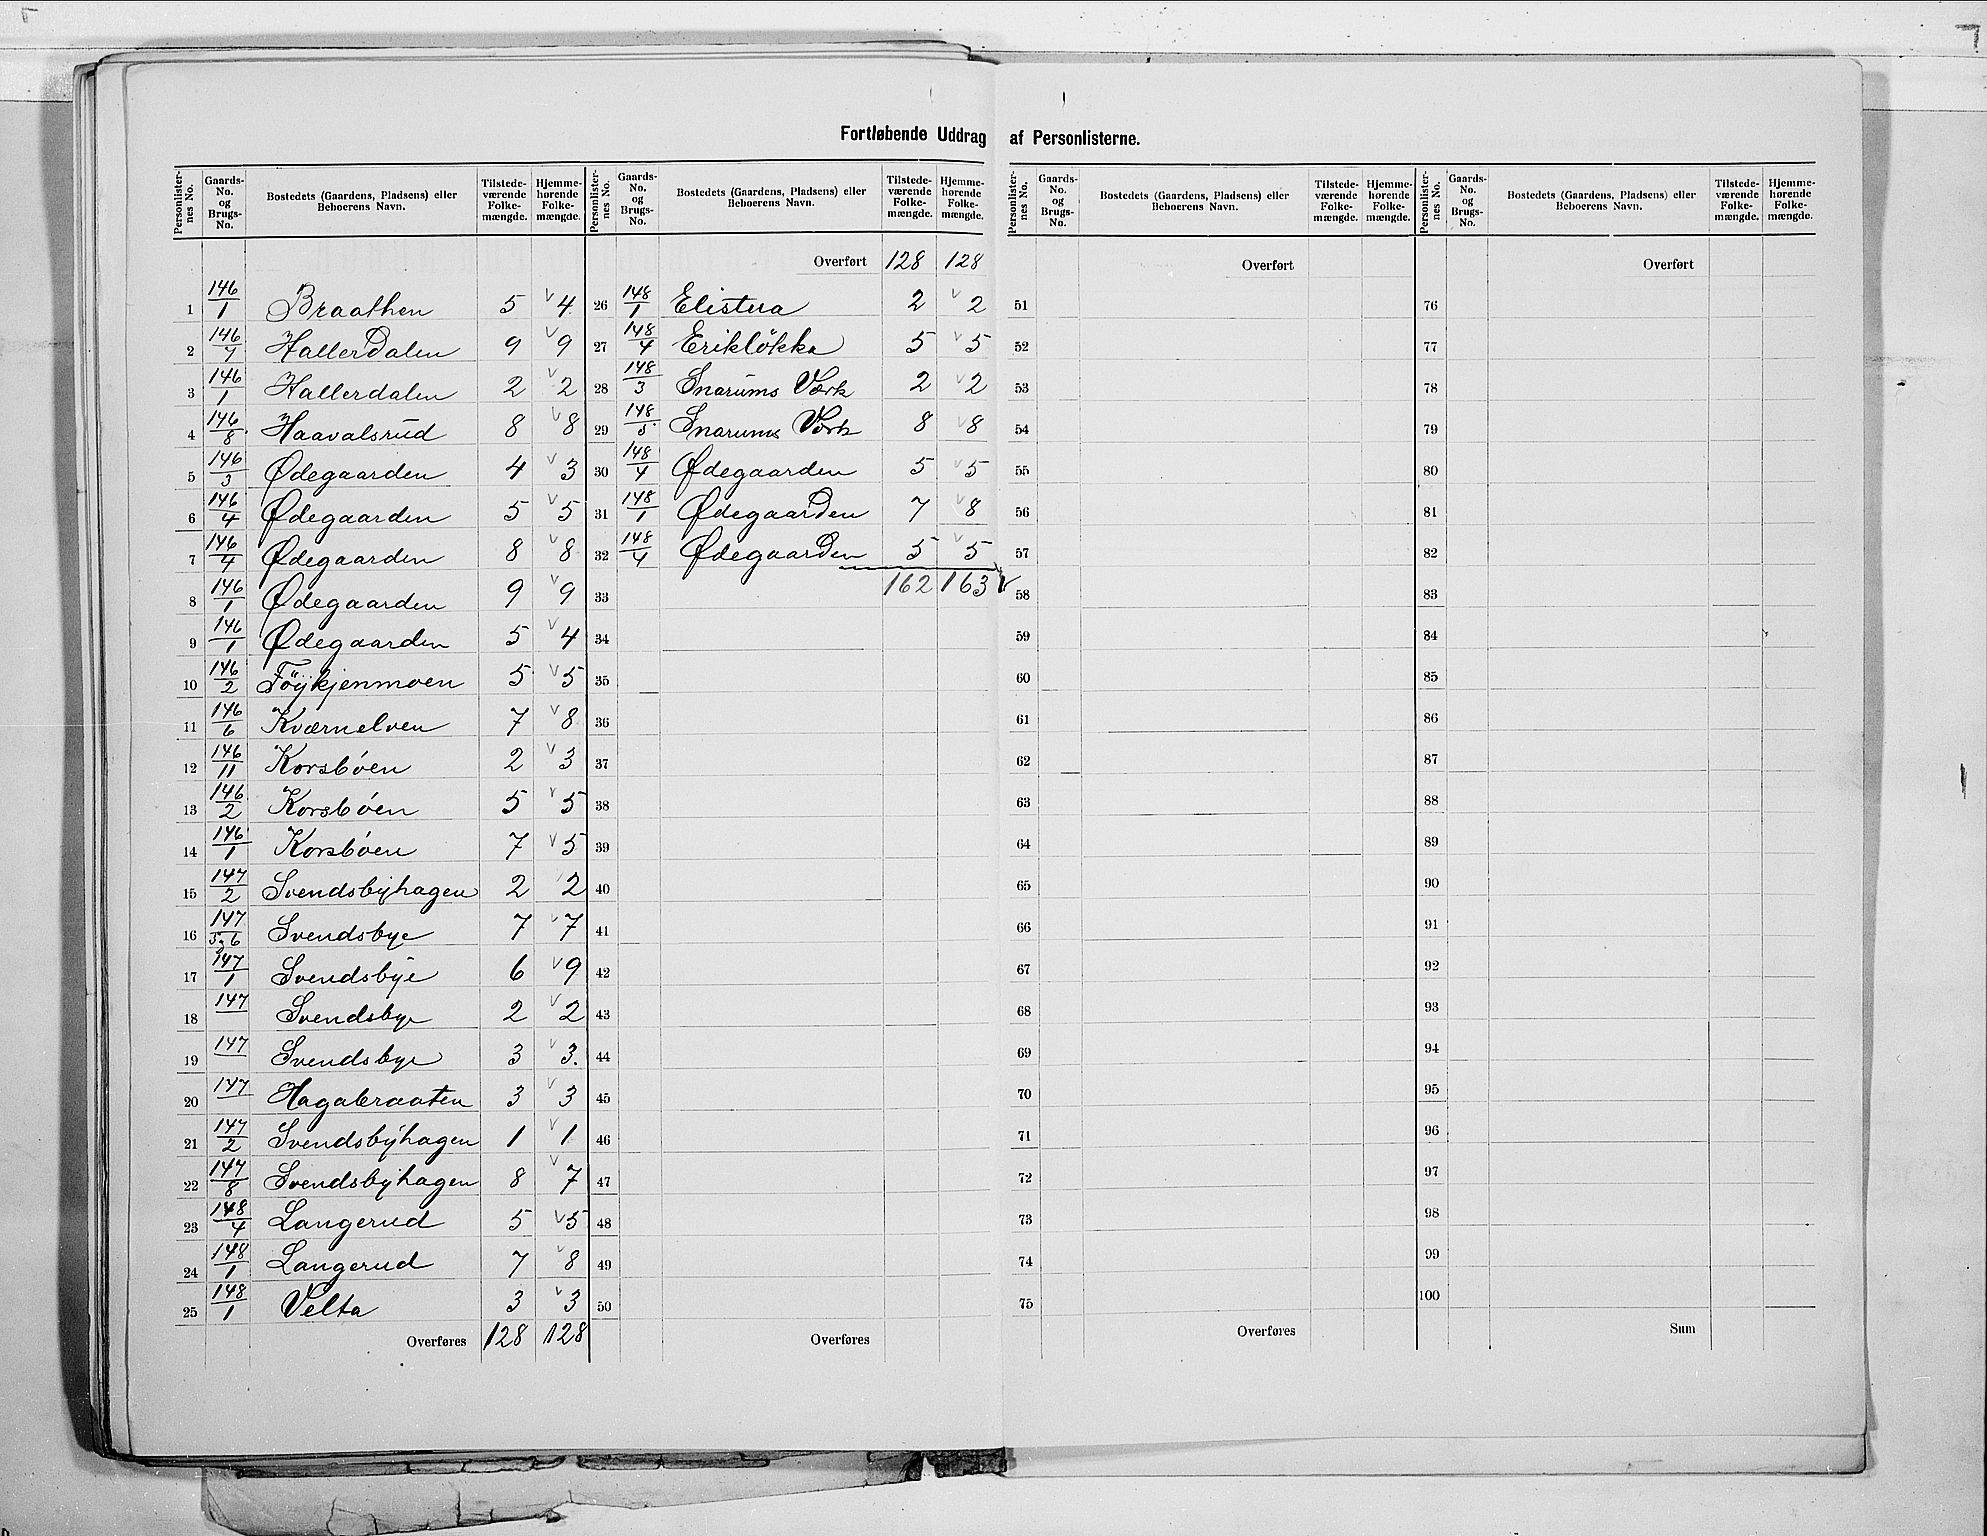 Fortløbende Uddrag af Personlisterne.
Personlister-nes No. | Gaards-No. og Brugs-No. | Bostedets (Gaardens, Pladsens) eller Beboerens Navn. | Tilstede-værende Folke-mængde. | Hjemme-hørende Folke-mængde.
1 146/1 Braathen 5 v 4
2 146/7 Hallerdalen 9 v 9
3 146/1 Hallerdalen 2 v 2
4 146/8 Haavalsrud 8 v 8
5 146/3 Ødegaarden 4 v 3
6 146/4 Ødegaarden 5 v 5
7 146/4 Ødegaarden 8 v 8
8 146/1 Ødegaarden 9 v 9
9 146/1 Ødegaarden 5 v 4
10 146/2 Føykjenmoen 5 v 5
11 146/6 Kværnelven 7 v 8
12 146/11 Korsbóen 2 v 3
13 146/2 Korsbóen 5 v 5
14 146/1 Korsbóen 7 v 5
15 147/2 Svendsbyhagen 2 2
16 147/5 & 6 Svendsbye 7 v 7
17 147/1 Svendsbye 6 v 9
18 147 Svendsbye 2 v 2
19 147 Svendsbye 3 v 3.
20 147 Hagabraaten 3 v 3
21 147/2 Svendsbyhagen 1 v 1
22 147/8 Svendsbyhagen 8 v 7
23 148/4 Langerud 5 v 5
24 148/1 Langerud 7 v 8
25 148/1 Velta 3 v 3
Overføres 128 128
Personlister-nes No. | Gaards-No. og Brugs-No. | Bostedets (Gaardens, Pladsens) eller Beboerens Navn. | Tilstede-værende Folke-mængde. | Hjemme-hørende Folke-mængde.
Overført 128 128
26 148/1 Elistua 2 v 2
27 148/4 Erikløkka 5 v 5
28 148/3 Snarums Værk 2 v 2
29 148/5 Snarums Værk 8 v 8
30 148/4 Ødegaarden 5 v 5
31 148/1 Ødegaarden 7 v 8
32 148/4 Ødegaarden 5 v 5
33 162 163 v
34
35
36
37
38
39
40
41
42
43
44
45
46
47
48
49
50
Overføres
Personlister-nes No. | Gaards-No. og Brugs-No. | Bostedets (Gaardens, Pladsens) eller Beboerens Navn. | Tilstede-værende Folke-mængde. | Hjemme-hørende Folke-mængde.
Overført
51
52
53
54
55
56
57
58
59
60
61
62
63
64
65
66
67
68
69
70
71
72
73
74
75
Overføres
Personlister-nes No. | Gaards-No. og Brugs-No. | Bostedets (Gaardens, Pladsens) eller Beboerens Navn. | Tilstede-værende Folke-mængde. | Hjemme-hørende Folke-mængde.
Overført
76
77
78
79
80
81
82
83
84
85
86
87
88
89
90
91
92
93
94
95
96
97
98
99
100
Sum